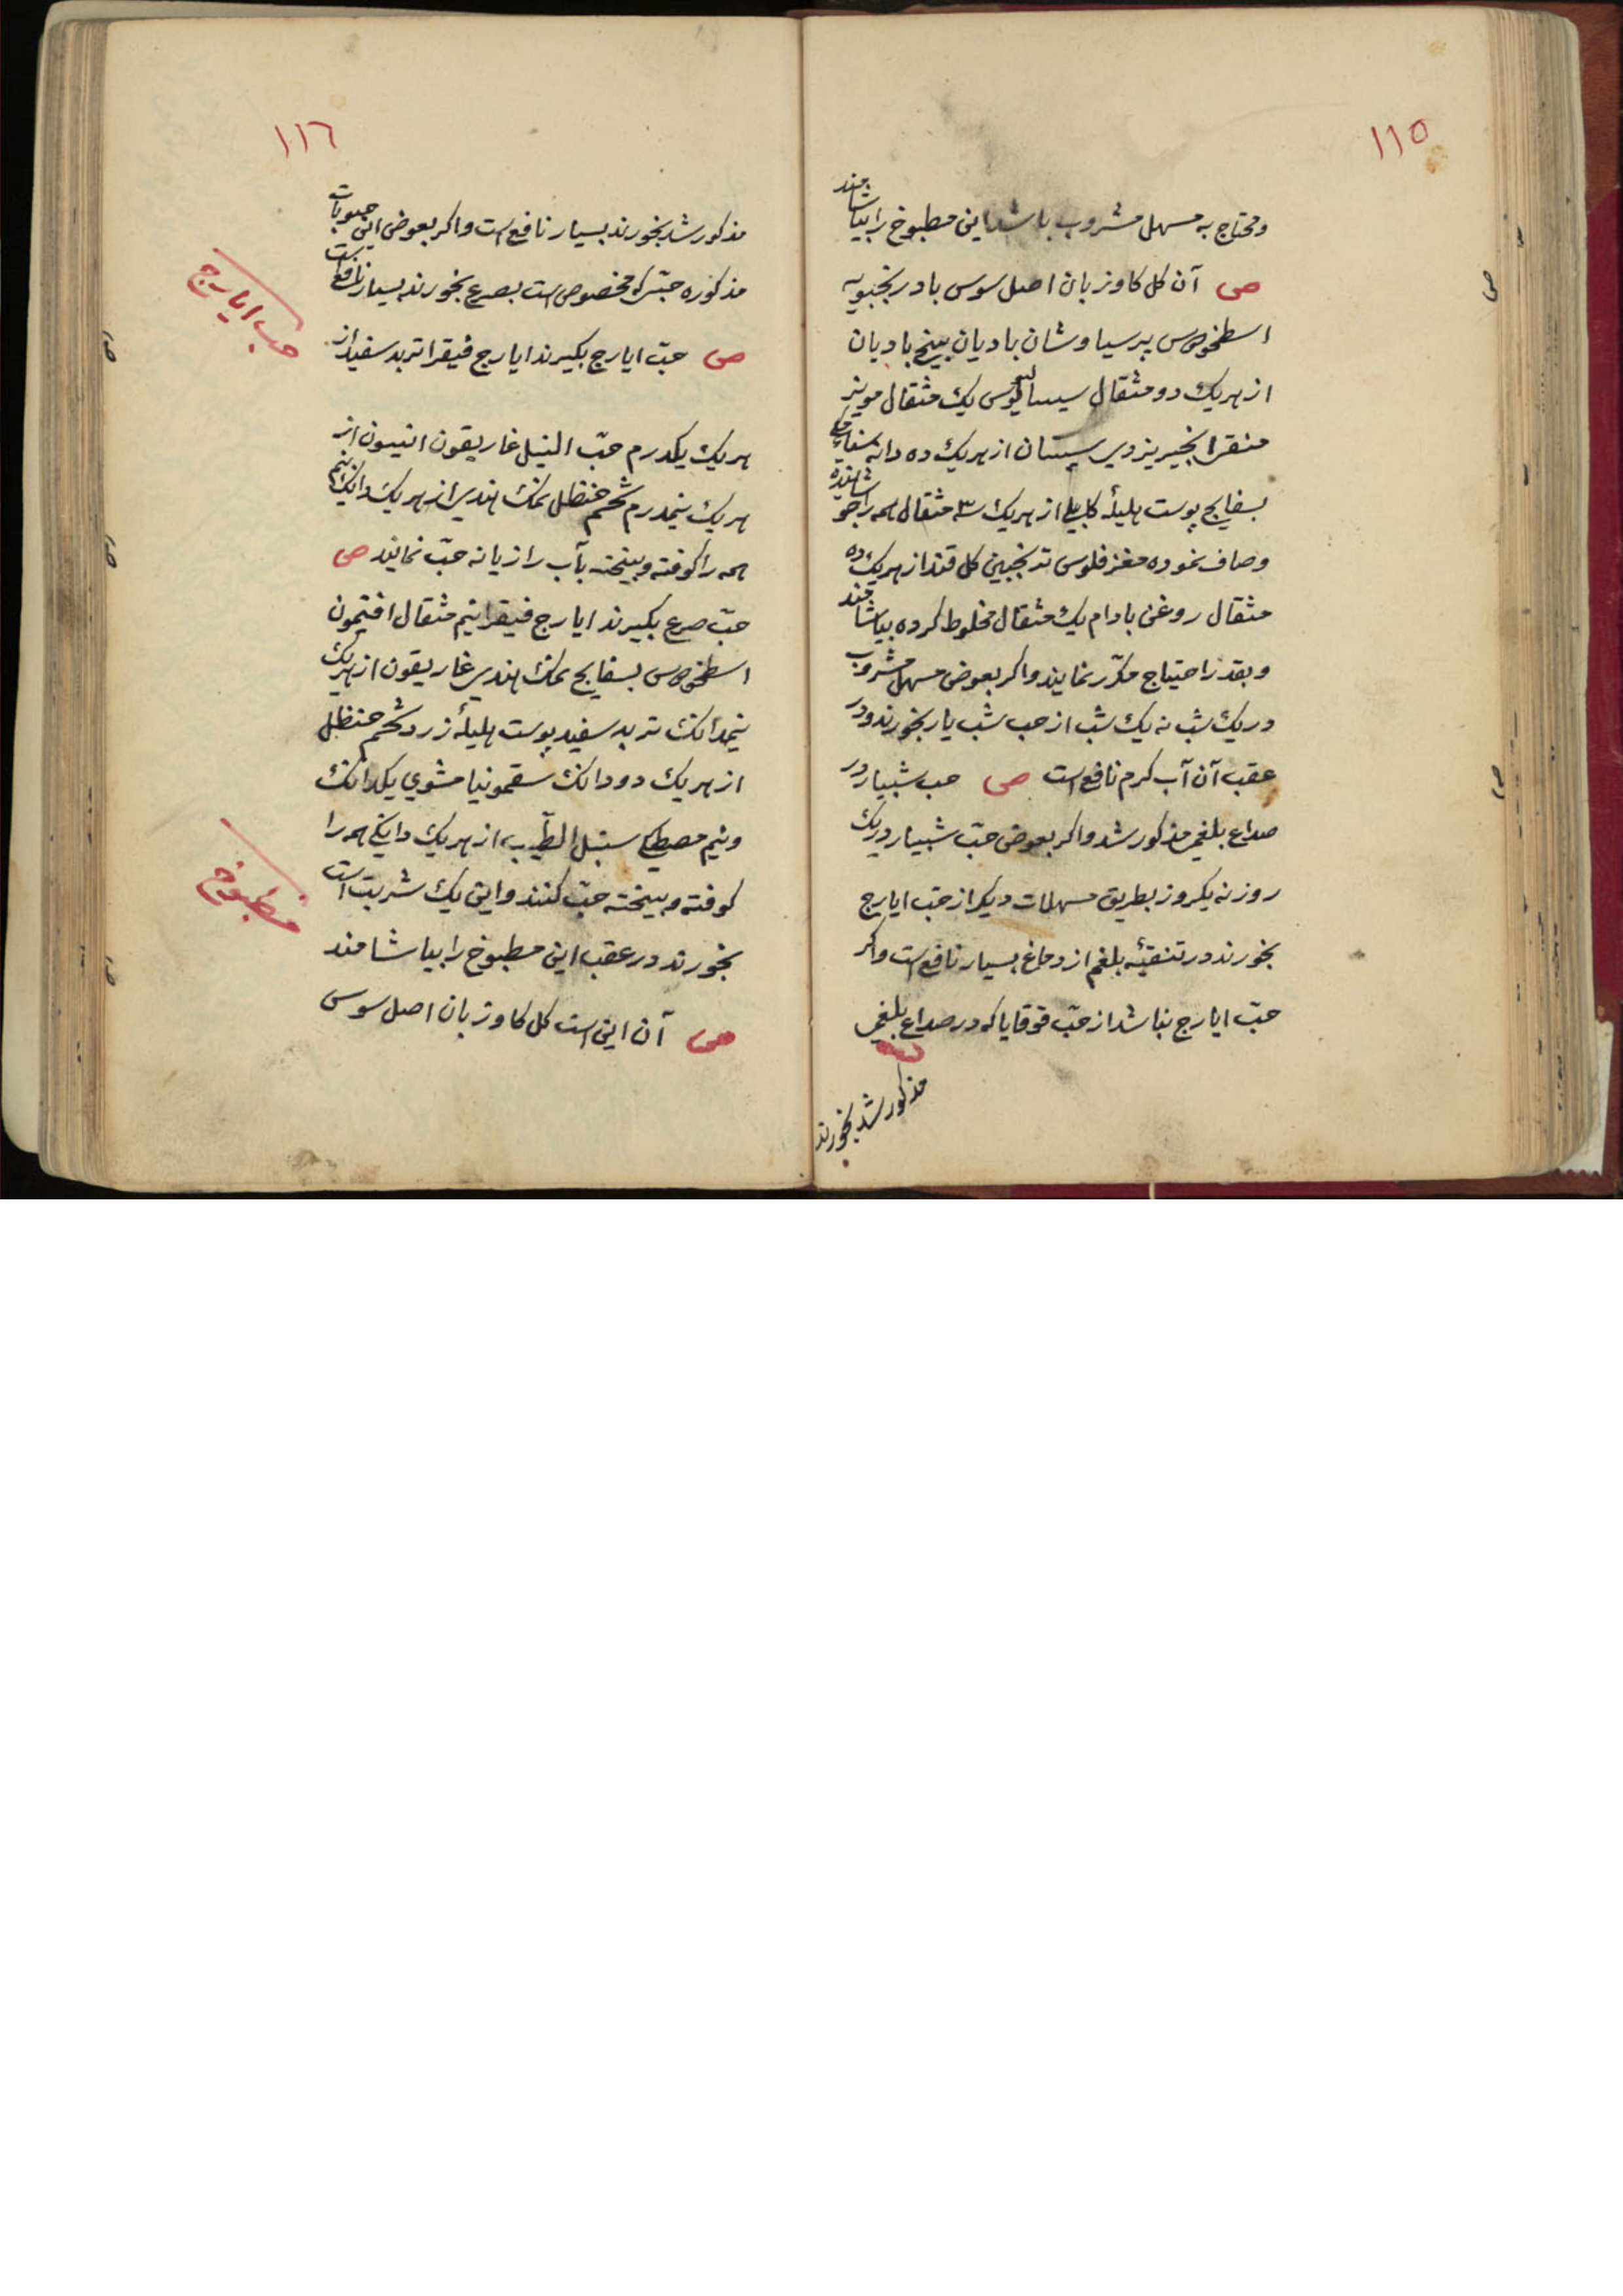 ١١٥
ومحتاج به مسهل مشروب باشد این مطبوخ را بیاشامند
ص آن کل کاوزبان اصل سوس بادرنجبویه
اسطخودس پرسیاوشان بادیان بیخ بادیان
از هریک دو مثقال سیسالیوس یک مثقال مویز
منقی انجیر یزدی سپستان از هریک ده دانه
بسفایج پوست هلیلهٔ کابلی از هریک سه مثقال همه را جوشانیده
وصاف نموده مغز فلوس ترنجبین کل قند از هریک ده
مثقال روغن بادام یک مثقال مخلوط کرده بیاشامند
وبقدر احتیاج مکرّر نمایند واکر بعوض مسهل مشروب
در یک شب نه یک شب از حب شب یار بخورند ودر
عقب آن آب کرم نافع است ص حب شبیار در
صداع بلغمی مذکور شد واکر بعوض حبّ شبیار در یک
روز نه یکروز بطریق مسهلات دیکر از حبّ ایارج
بخورند در تنقیهٔ بلغم از دماغ بسیار نافع است واکر
حبّ ایارج نباشد از حبّ قوقایا که در صداع بلغمی
مذکور شد بخورند
١١٦
مذکور شد بخورند بسیار نافع است واکر بعوض این حبوبات
مذکوره حبّی که مخصوص است بصرع بخورند بسیار نافع است
ص حبّ ایارج بکیرند ایارج فیقرا تربد سفید از
حب ایارج
هریک یکدرم حبّ النیل غاریقون انیسون از
هریک نیمدرم شحم حنظل نمک هندی از هریک دانک ونیم
همه را کوفته وبیخته بآب رازیانه حبّ نمایند ص
حبّ صرع بکیرند ایارج فیقرا نیم مثقال افتیمون
اسطخودس بسفایج نمک هندی غاریقون از هریک
نیمدانک تربد سفید پوست هلیلهٔ زرد شحم حنظل
از هریک دو دانک سقمونیا مشوی یکدانک
ونیم مصطکی سنبل الطّیب از هریک دانکی همه را
کوفته وبیخته حبّ کنند واین یک شربت است
مطبوخ
بخورند در عقب این مطبوخ را بیاشامند
ص آن این است کل کاوزبان اصل سوس